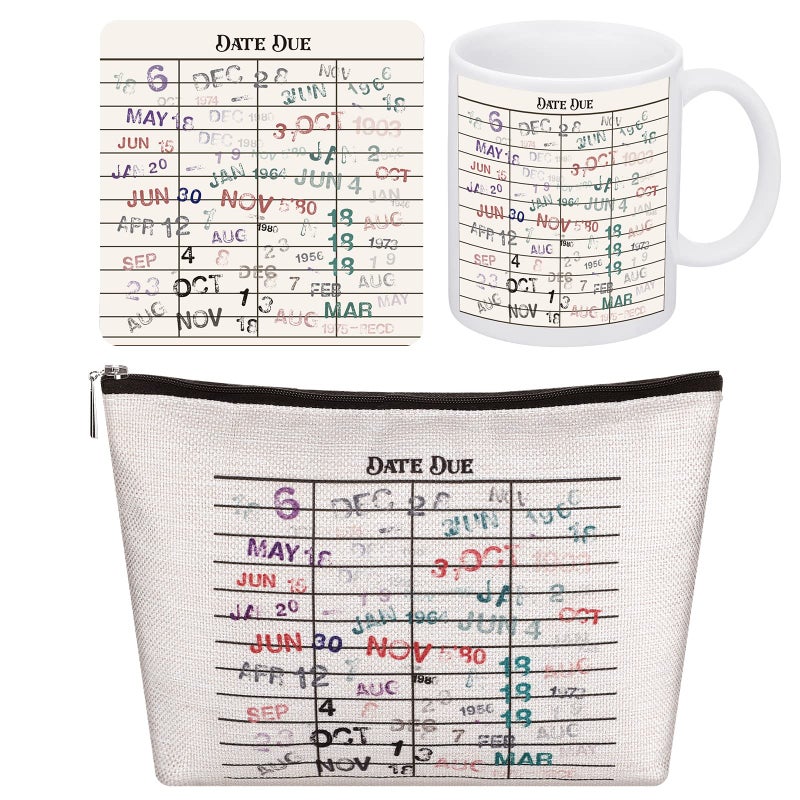 DATE DUE
18 6 DEC 28 NOV 1966
OCT 1974 JUN 18
MAY 18 DEC 1980 3 OCT 1903
JUN 15 DEC
JAN 20 19 JAN 2
JAN 1964 JUN 4 OCT
JUN 30 NOV 5'80 JAN
APR 12 1980 18 AUG
AUG 18 1973
SEP 4 8 23 1956 18 19
23 OCT DEC 8 7 FEB AUG
1 3 MAR MAY
AUG NOV 18 AUG 1975-RECD
DATE DUE
6 DEC 28 NOV 1966
JUN 18
MAY 18 DEC 3 OCT 1903
JUN 15
JAN 20 19 JAN 2
JAN 1964 JUN 4 OCT
JUN 30 NOV 5'80
APR 12 1980 18 AUG
AUG 18 1973
SEP 4 8 23 1956 18 19
23 OCT DEC 8 7 FEB AUG
1 3 MAR MAY
AUG NOV 18 AUG 1975-RECD
DATE DUE
6 DEC 28 NOV 1966
JUN 18
MAY 18 3 OCT
JUN 15
JAN 20 19 JAN 2
JAN 1964 JUN 4 OCT
JUN 30 NOV 5'80
APR 12 1980 18 AUG
AUG 18 1973
SEP 4 8 23 1956 18 19
23 OCT DEC 8 7 FEB AUG
1 3 MAR MAY
AUG NOV 18 AUG